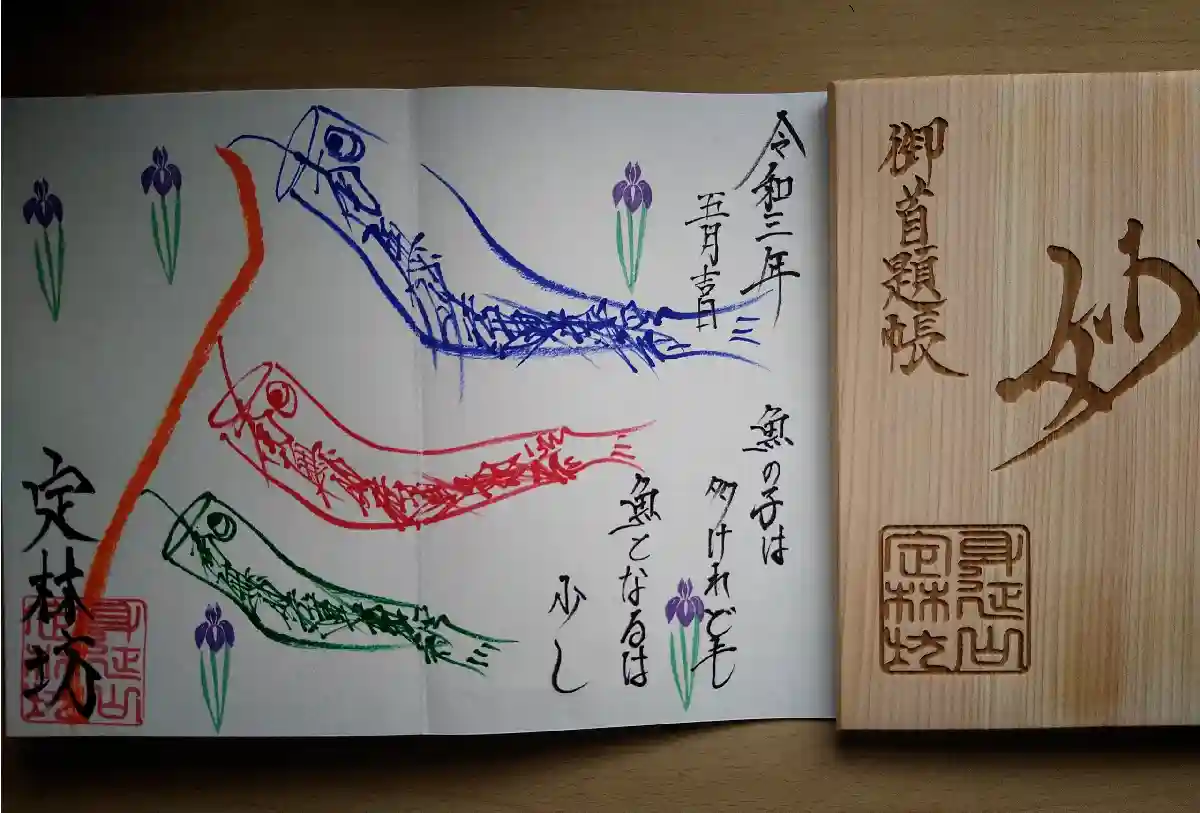 妙
御首題帳
身延山
定林坊
令和三年
五月吉日
魚の子は
多けれども
魚となるは
少し
定林坊
身延山
定林坊